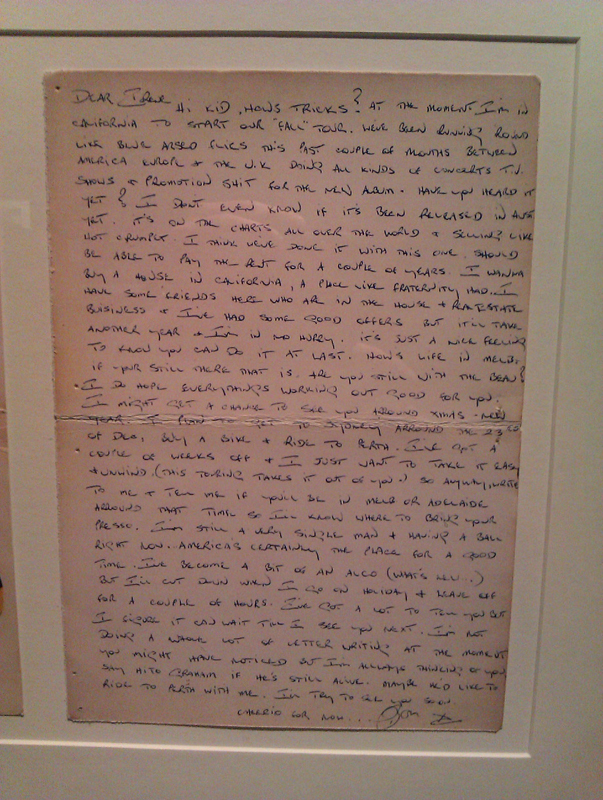 DEAR Irene Hi KID, HOWS TRICKS? AT THE MOMENT I'm in
CALIFORNIA TO START OUR "FALL" TOUR. WE'VE BEEN RUNNING ROUND
LIKE BLUE ARSED FLIES THIS PAST COUPLE OF MONTHS BETWEEN
AMERICA EUROPE & THE U.K DOING ALL KINDS OF CONCERTS T.V.
SHOWS & PROMOTION SHIT FOR THE NEW ALBUM. HAVE YOU HEARD IT
YET? I DONT EVEN KNOW IF IT'S BEEN RELEASED IN AUST
YET. IT'S ON THE CHARTS ALL OVER THE WORLD & SELLING LIKE
HOT CRUMPET. I THINK WEVE DONE IT WITH THIS ONE. SHOULD
BE ABLE TO PAY THE RENT FOR A COUPLE OF YEARS. I WANNA
BUY A HOUSE IN CALIFORNIA, A PLACE LIKE FRATERNITY HAD.. I
HAVE SOME FRIENDS HERE WHO ARE IN THE HOUSE & REALESTATE
BUISINESS & I'VE HAD SOME GOOD OFFERS BUT IT'LL TAKE
ANOTHER YEAR & I'M IN NO HURRY. IT'S JUST A NICE FEELING
TO KNOW YOU CAN DO IT AT LAST. HOW'S LIFE IN MELB.
IF YOUR STILL THERE THAT IS. ARE YOU STILL WITH THE BEAN?
I DO HOPE EVERYTHINGS WORKING OUT GOOD FOR YOU.
I MIGHT GET A CHANCE TO SEE YOU ARROUND XMAS - NEW
YEAR. I PLAN TO GET TO SYDNEY ARROUND THE 23RD
OF DEC, BUY A BIKE & RIDE TO PERTH. I'VE GOT A
COUPLE OF WEEKS OFF & I JUST WANT TO TAKE IT EASY
& UNWIND. (THIS TOURING TAKES IT OUT OF YOU.) SO ANYWAY, WRITE
TO ME & TELL ME IF YOU'LL BE IN MELB OR ADELAIDE
ARROUND THAT TIME SO I'LL KNOW WHERE TO BRING YOUR
PRESSO. I'M STILL A VERY SINGLE MAN & HAVING A BALL
RIGHT NOW.. AMERICA'S CERTAINLY THE PLACE FOR A GOOD
TIME. I'VE BECOME A BIT OF AN ALCO (WHAT'S NEW..)
BUT I'LL CUT DOWN WHEN I GO ON HOLIDAY & LEAVE OFF
FOR A COUPLE OF HOURS. I'VE GOT A LOT TO TELL YOU BUT
I FIGURE IT CAN WAIT TILL I SEE YOU NEXT. I'M NOT
DOING A WHOLE LOT OF LETTER WRITING AT THE MOMENT
YOU MIGHT HAVE NOTICED BUT I'M ALLWAYS THINKING OF YOU
SAY HI TO GRAHAM IF HE'S STILL ALIVE. MAYBE HE'D LIKE TO
RIDE TO PERTH WITH ME. I'LL TRY TO SEE YOU SOON.
CHEERIO FOR NOW... Bon